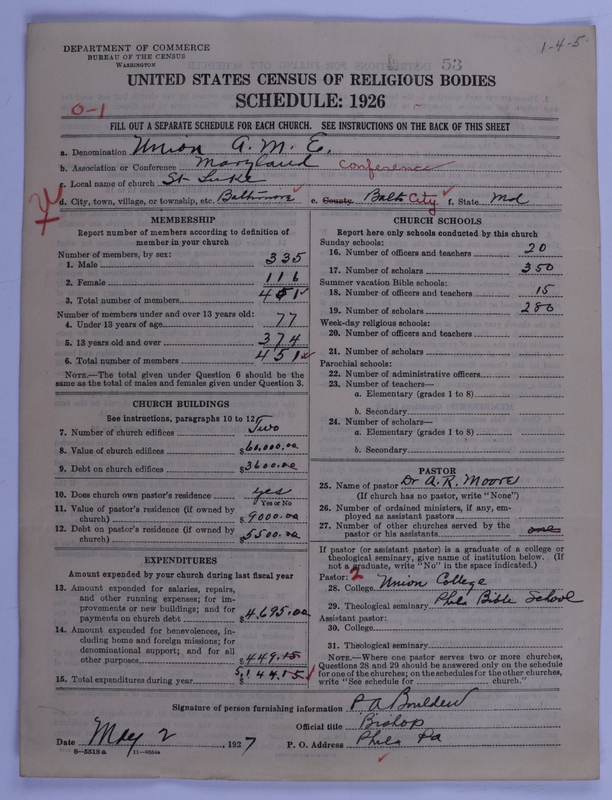 1-4-5
DEPARTMENT OF COMMERCE
BUREAU OF THE CENSUS
WASHINGTON
53
UNITED STATES CENSUS OF RELIGIOUS BODIES
SCHEDULE: 1926
0-1
FILL OUT A SEPARATE SCHEDULE FOR EACH CHURCH. SEE INSTRUCTIONS ON THE BACK OF THIS SHEET
a. Denomination Union A. M. E.
b. Association or Conference Maryland Conference
c. Local name of church St Luke
d. City, town, village, or township, etc. Baltimore e. County Balto City f. State Md
MEMBERSHIP
Report number of members according to definition of
member in your church
Number of members, by sex:
1. Male 335
2. Female 116
3. Total number of members 451
Number of members under and over 13 years old:
4. Under 13 years of age 77
5. 13 years old and over 374
6. Total number of members 451
NOTE.—The total given under Question 6 should be
same as the total of males and females given under Question 3.
CHURCH BUILDINGS
See instructions, paragraphs 10 to 12
7. Number of church edifices Two
8. Value of church edifices $60,000.00
9. Debt on church edifices $3600.00
10. Does church own pastor's residence yes
Yes or No
11. Value of pastor's residence (if owned by
church) $9000.00
12. Debt on pastor's residence (if owned by
church) $5500.00
EXPENDITURES
Amount expended by your church during last fiscal year
13. Amount expended for salaries, repairs,
and other running expenses; for im-
provements or new buildings; and for
payments on church debt $4,695.00
14. Amount expended for benevolences, in-
cluding home and foreign missions; for
denominational support; and for all
other purposes $449.15
15. Total expenditures during year $5,144.15
CHURCH SCHOOLS
Report here only schools conducted by this church
Sunday schools:
16. Number of officers and teachers 20
17. Number of scholars 350
Summer vacation Bible schools:
18. Number of officers and teachers 15
19. Number of scholars 280
Week-day religious schools:
20. Number of officers and teachers
21. Number of scholars
Parochial schools:
22. Number of administrative officers
23. Number of teachers—
a. Elementary (grades 1 to 8)
b. Secondary
24. Number of scholars—
a. Elementary (grades 1 to 8)
b. Secondary
PASTOR
25. Name of pastor Dr A. R. Moore
(If church has no pastor, write "None")
26. Number of ordained ministers, if any, em-
ployed as assistant pastors
27. Number of other churches served by the
pastor or his assistants one
If pastor (or assistant pastor) is a graduate of a college or
theological seminary, give name of institution below. (If
not a graduate, write "No" in the space indicated.)
Pastor: 2
28. College Union College
29. Theological seminary Phila Bible School
Assistant pastor:
30. College
31. Theological seminary
NOTE.—Where one pastor serves two or more churches,
Questions 28 and 29 should be answered only on the schedule
for one of the churches; on the schedules for the other churches,
write "See schedule for church."
Signature of person furnishing information P A Boulden
Official title Bishop
Date May 2, 1927 P. O. Address Phila Pa
8-5518a 11-9554a